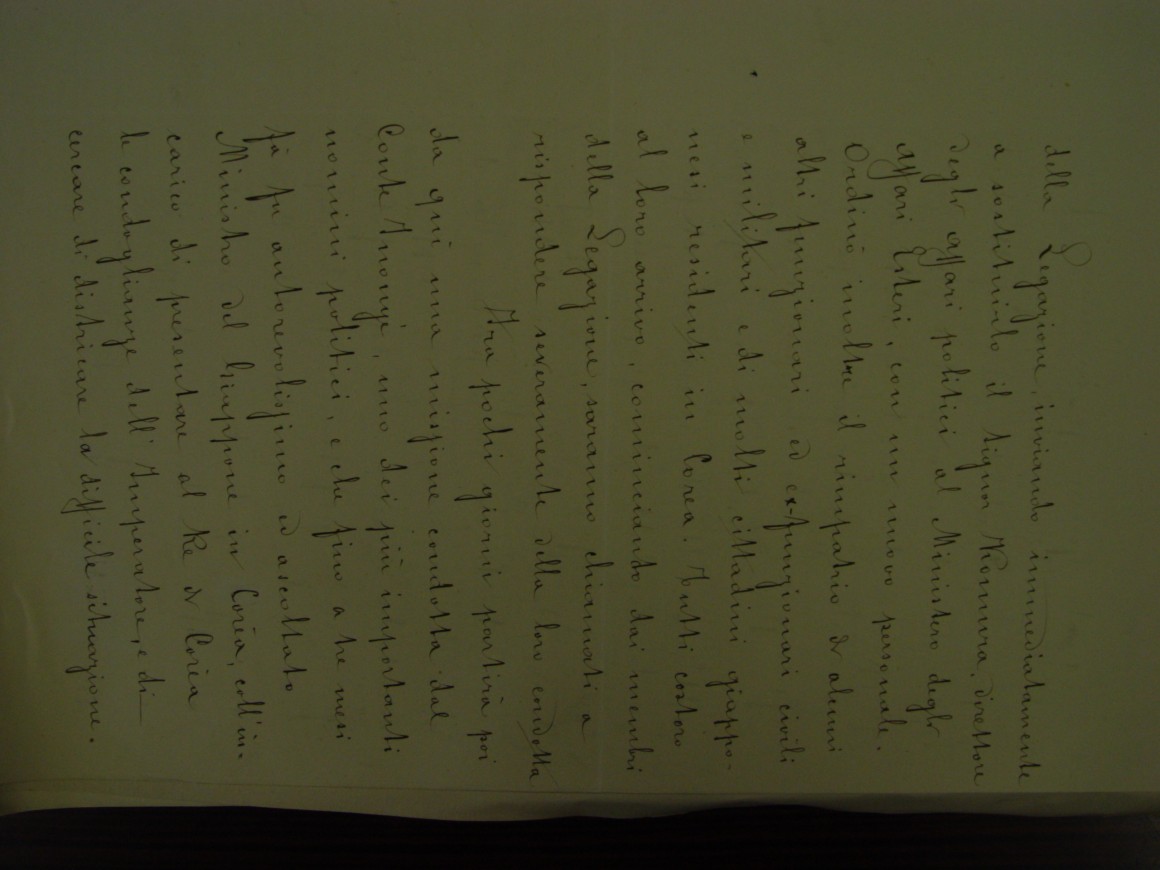 della Legazione, inviando immediatamente
a sostituirlo il Signor Komura, direttore
degli affari politici al Ministero degli
affari Esteri, con un nuovo personale.
Ordinò inoltre il rimpatrio di alcuni
altri funzionari ed ex-funzionari civili
e militari e di molti cittadini giappo-
nesi residenti in Corea. Tutti costoro
al loro arrivo, cominciando dai membri
della Legazione, saranno chiamati a
rispondere severamente della loro condotta
Fra pochi giorni partirà poi
da quì una missione condotta dal
Conte Inouyé, uno dei più importanti
uomini politici, e che fino a tre mesi
fà fu autorevolissimo ed ascoltato
Ministro del Giappone in Corèa, coll'in-
carico di presentare al Re di Corèa
le condoglianze dell'Imperatore, e di
cercare di districare la difficile situazione.